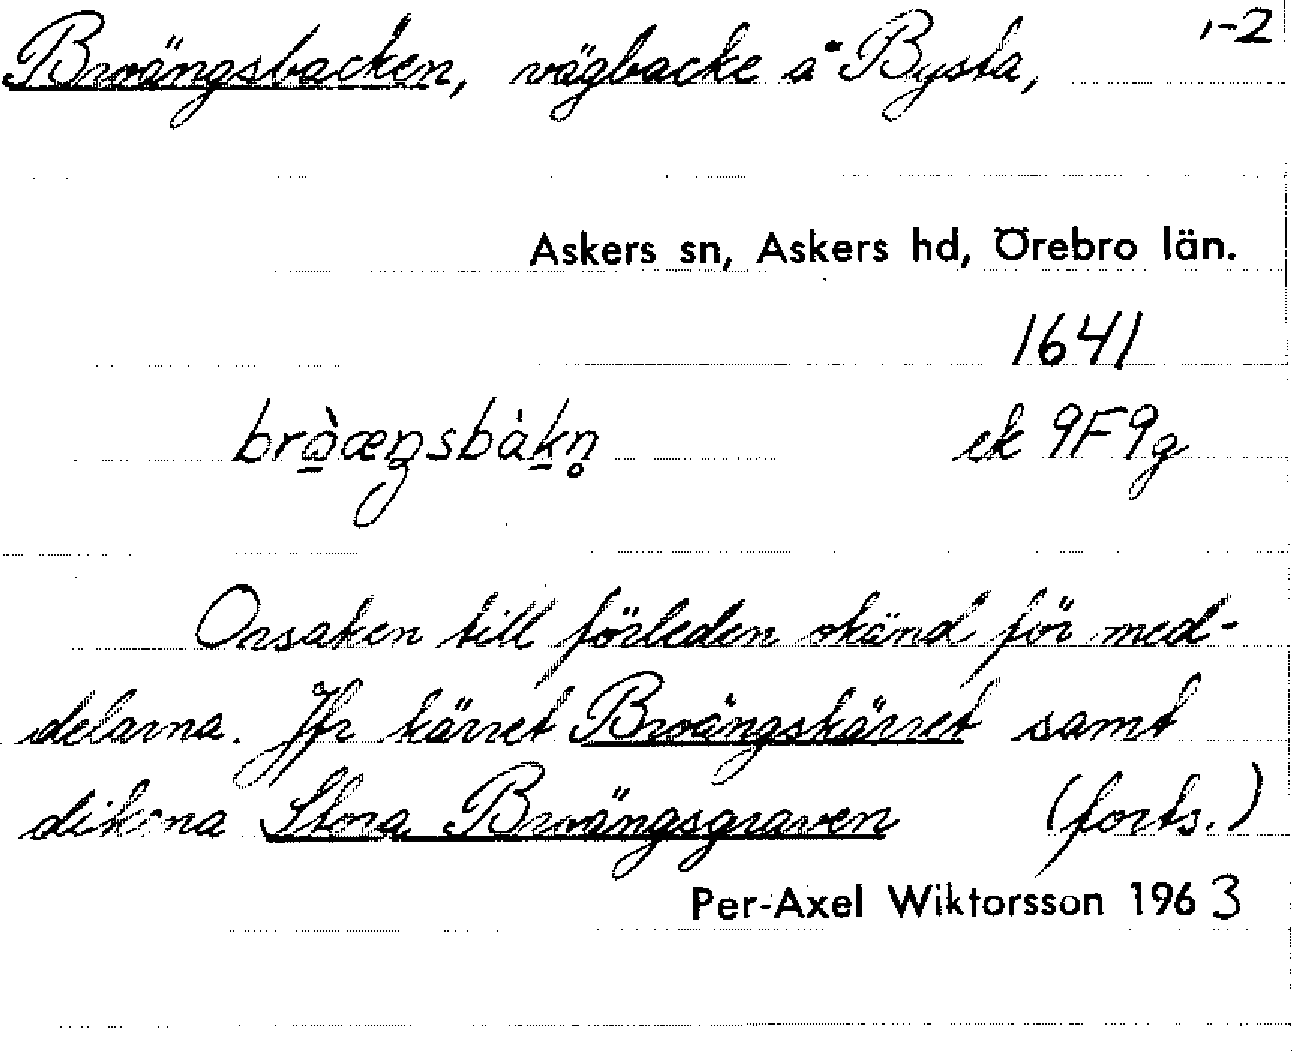 Broängsbacken, vägbacke å Bysta, 1-2
Askers sn, Askers hd, Örebro län.
1641
ek 9F9g
Orsaken till förleden okänd för med-
delarna. Jfr kärret Broängskärret samt
dikena Stora Broängsgraven (forts.)
Per-Axel Wiktorsson 1963